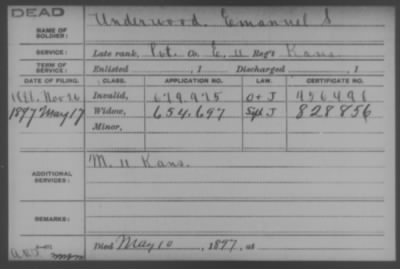 DEAD
NAME OF SOLDIER: Underwood, Emanuel S
SERVICE: Late rank, Pvt. Co. E, 11 Reg't Kans.
TERM OF SERVICE: Enlisted , 1 Discharged , 1
DATE OF FILING. CLASS. APPLICATION NO. LAW. CERTIFICATE NO.
Nov 26 Invalid, 679,975 O+J
1897 May 17 Widow, 654,697 J 828856
Minor,
ADDITIONAL SERVICES: M. 11 Kans.
REMARKS:
Died May 10, 1897, at